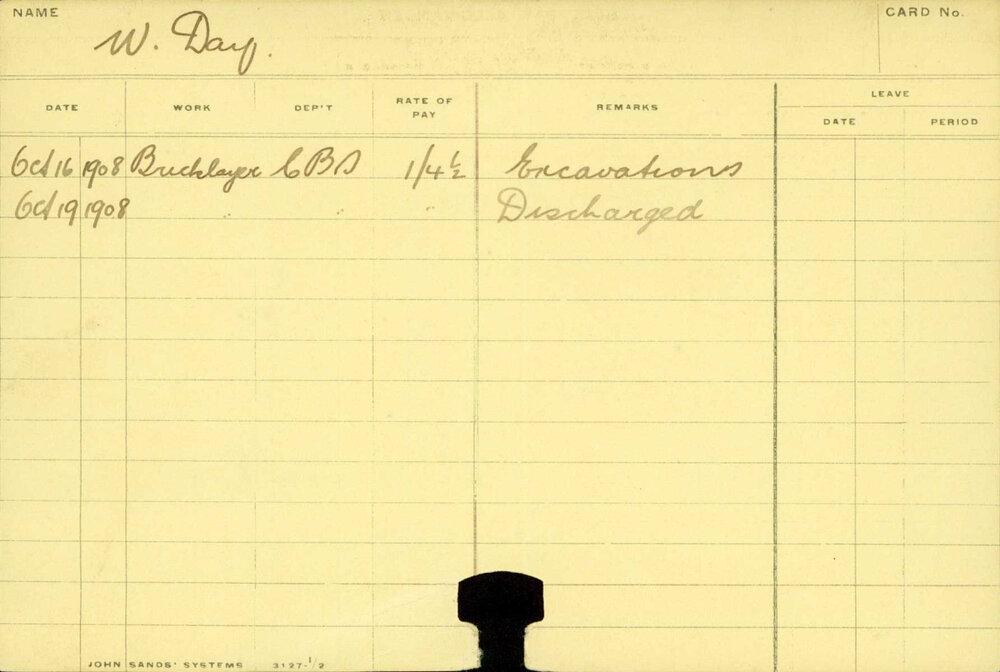 NAME
W. Day.
CARD No.
DATE WORK DEP'T RATE OF PAY REMARKS LEAVE
DATE PERIOD
Oct 16 1908 Bricklayer CBS 1/4½ Excavations
Oct 19 1908 " " " Discharged
JOHN SANDS' SYSTEMS 3127-1/2